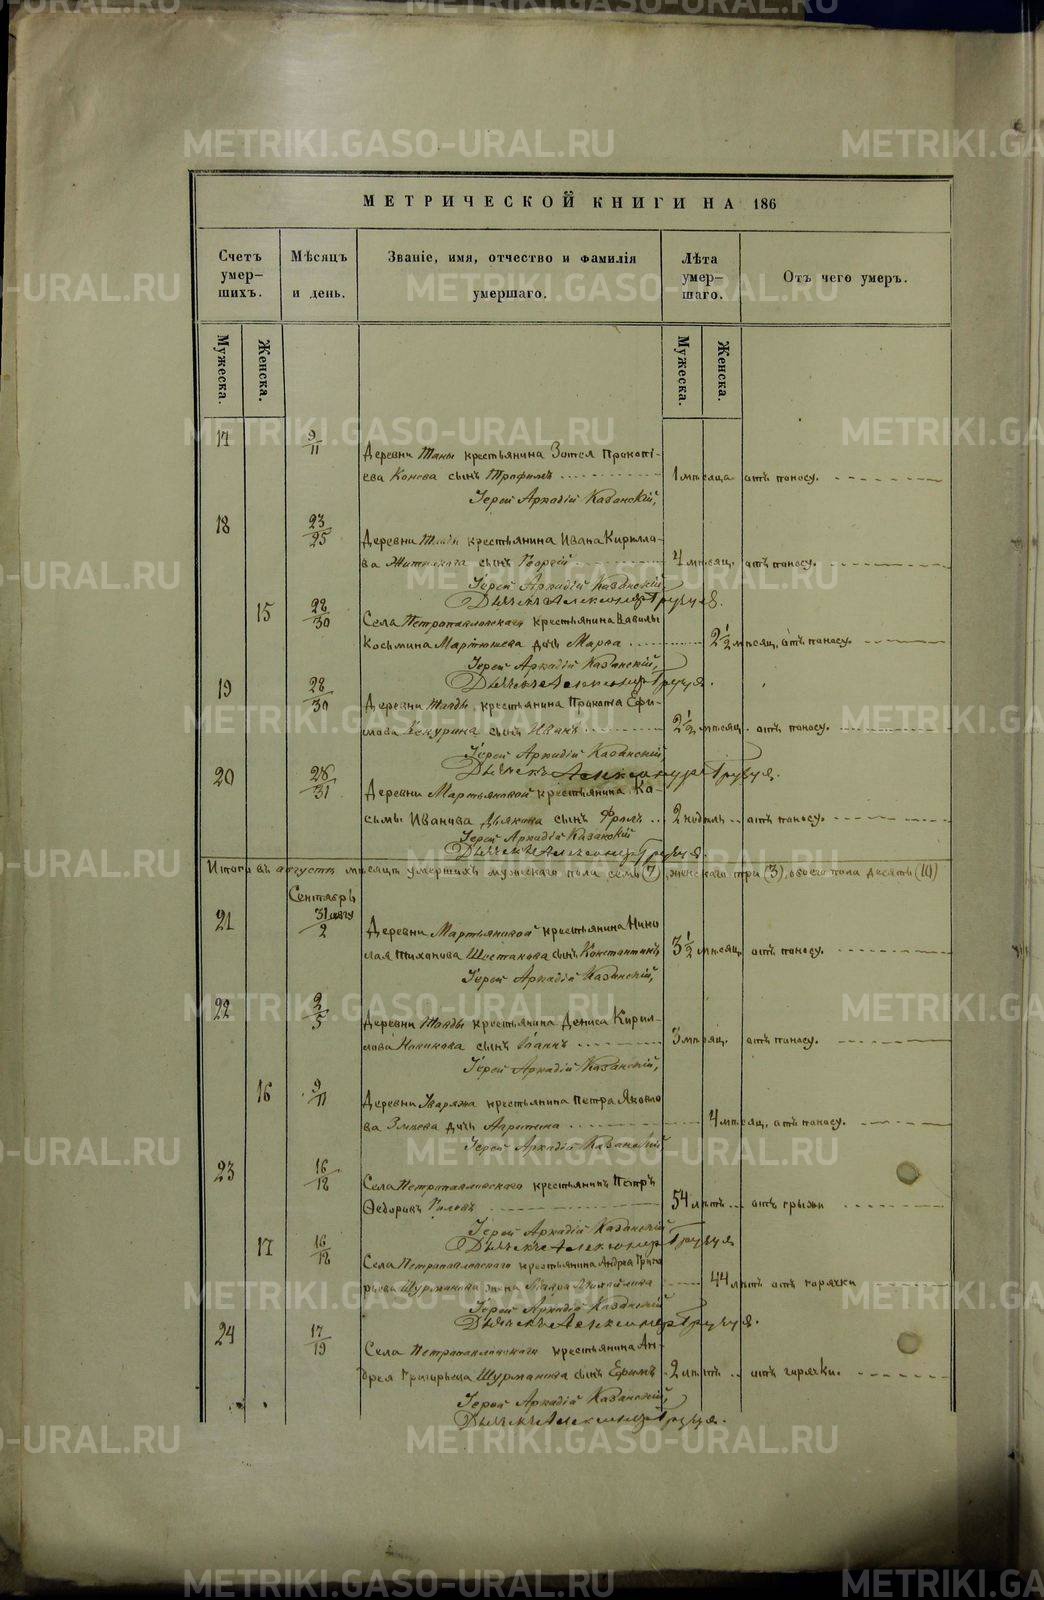 METRIKI.GASO-URAL.RU
МЕТРИЧЕСКОЙ КНИГИ НА 186
Счетъ умер-шихъ.
Мѣсяцъ и день.
Званіе, имя, отчество и фамилія умершаго.
Лѣта умер-шаго.
Отъ чего умеръ.
Мужеска. Женска.
Мужеска. Женска.
17 9/11 Деревни крестьянина Зотея Прокопі-
ева Конева сынъ Трофимъ 1 мѣсяца отъ поносу.
Іерей Аркадій Казанскій,
18 23/25 Деревни крестьянина Ивана Кирилло-
ва сынъ Георгій 4 мѣсяц. отъ поносу.
Іерей Аркадій Казанскій
Дьячекъ Александръ
15 28/30 Села Петропавловскаго крестьянина Вавилы
Косьмина дочь Марѳа 2 1/2 мѣсяц. отъ поносу.
Іерей Аркадій Казанскій,
Дьячекъ Александръ
19 28/30 Деревни Тавды крестьянина Прокопія Ефи-
мова сынъ Иванъ 2 1/2 мѣсяц. отъ поносу.
Іерей Аркадій Казанскій,
Дьячекъ Александръ
20 28/31 Деревни Мартьяновой крестьянина Ко-
сьмы Иванова сынъ Фролъ 2 недѣль отъ поносу.
Іерей Аркадій Казанскій
Дьячекъ Александръ
Итого въ августѣ мѣсяцѣ умершихъ мужескаго пола семь (7), женскаго три (3), обоего пола десять (10)
Сентябрь
21 31 авгу/2 Деревни Мартьяновой крестьянина Нико-
лая Тихонова Шестакова сынъ Константинъ 3 1/2 мѣсяц. отъ поносу.
Іерей Аркадій Казанскій,
22 2/5 Деревни Тавды крестьянина Дениса Кирил-
лова сынъ Іоаннъ 3 мѣсяц. отъ поносу.
Іерей Аркадій Казанскій,
16 9/11 Деревни крестьянина Петра Яковле-
ва дочь 4 мѣсяц. отъ поносу.
Іерей Аркадій Казанскій,
23 16/18 Села Петропавловскаго крестьянинъ Петръ
Ѳедоровъ 54 лѣтъ отъ грыжи
Іерей Аркадій Казанскій
Дьячекъ Александръ
17 16/18 Села Петропавловскаго крестьянина Андрея Григо-
рьева Шурманова жена Михайлова 44 лѣтъ отъ горячки
Іерей Аркадій Казанскій
Дьячекъ Александръ
24 17/19 Села Петропавловскаго крестьянина Ан-
дрея Григорьева Шурманова сынъ Ефимъ 2 лѣтъ отъ горячки.
Іерей Аркадій Казанскій,
Дьячекъ Александръ